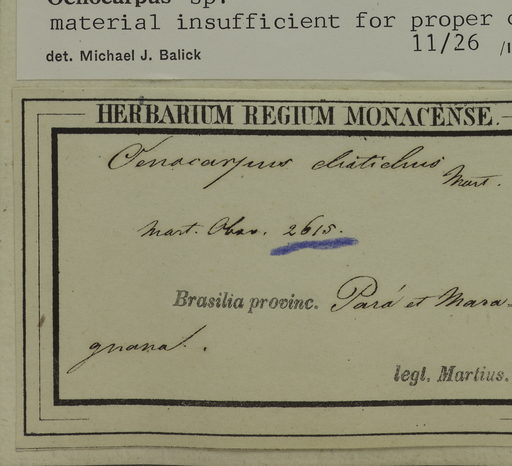 Oenocarpus sp.
material insufficient for proper
det. Michael J. Balick 11/26
HERBARIUM REGIUM MONACENSE.
Oenocarpus distichus
Mart.
Mart. Obsv. 2615.
Brasilia provinc. Pará et Mara-
gnana.
legl. Martius.